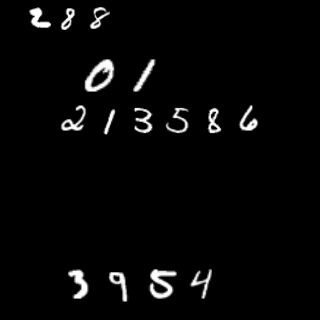 2 8 8
0 1
2 1 3 5 8 6
3 9 5 4